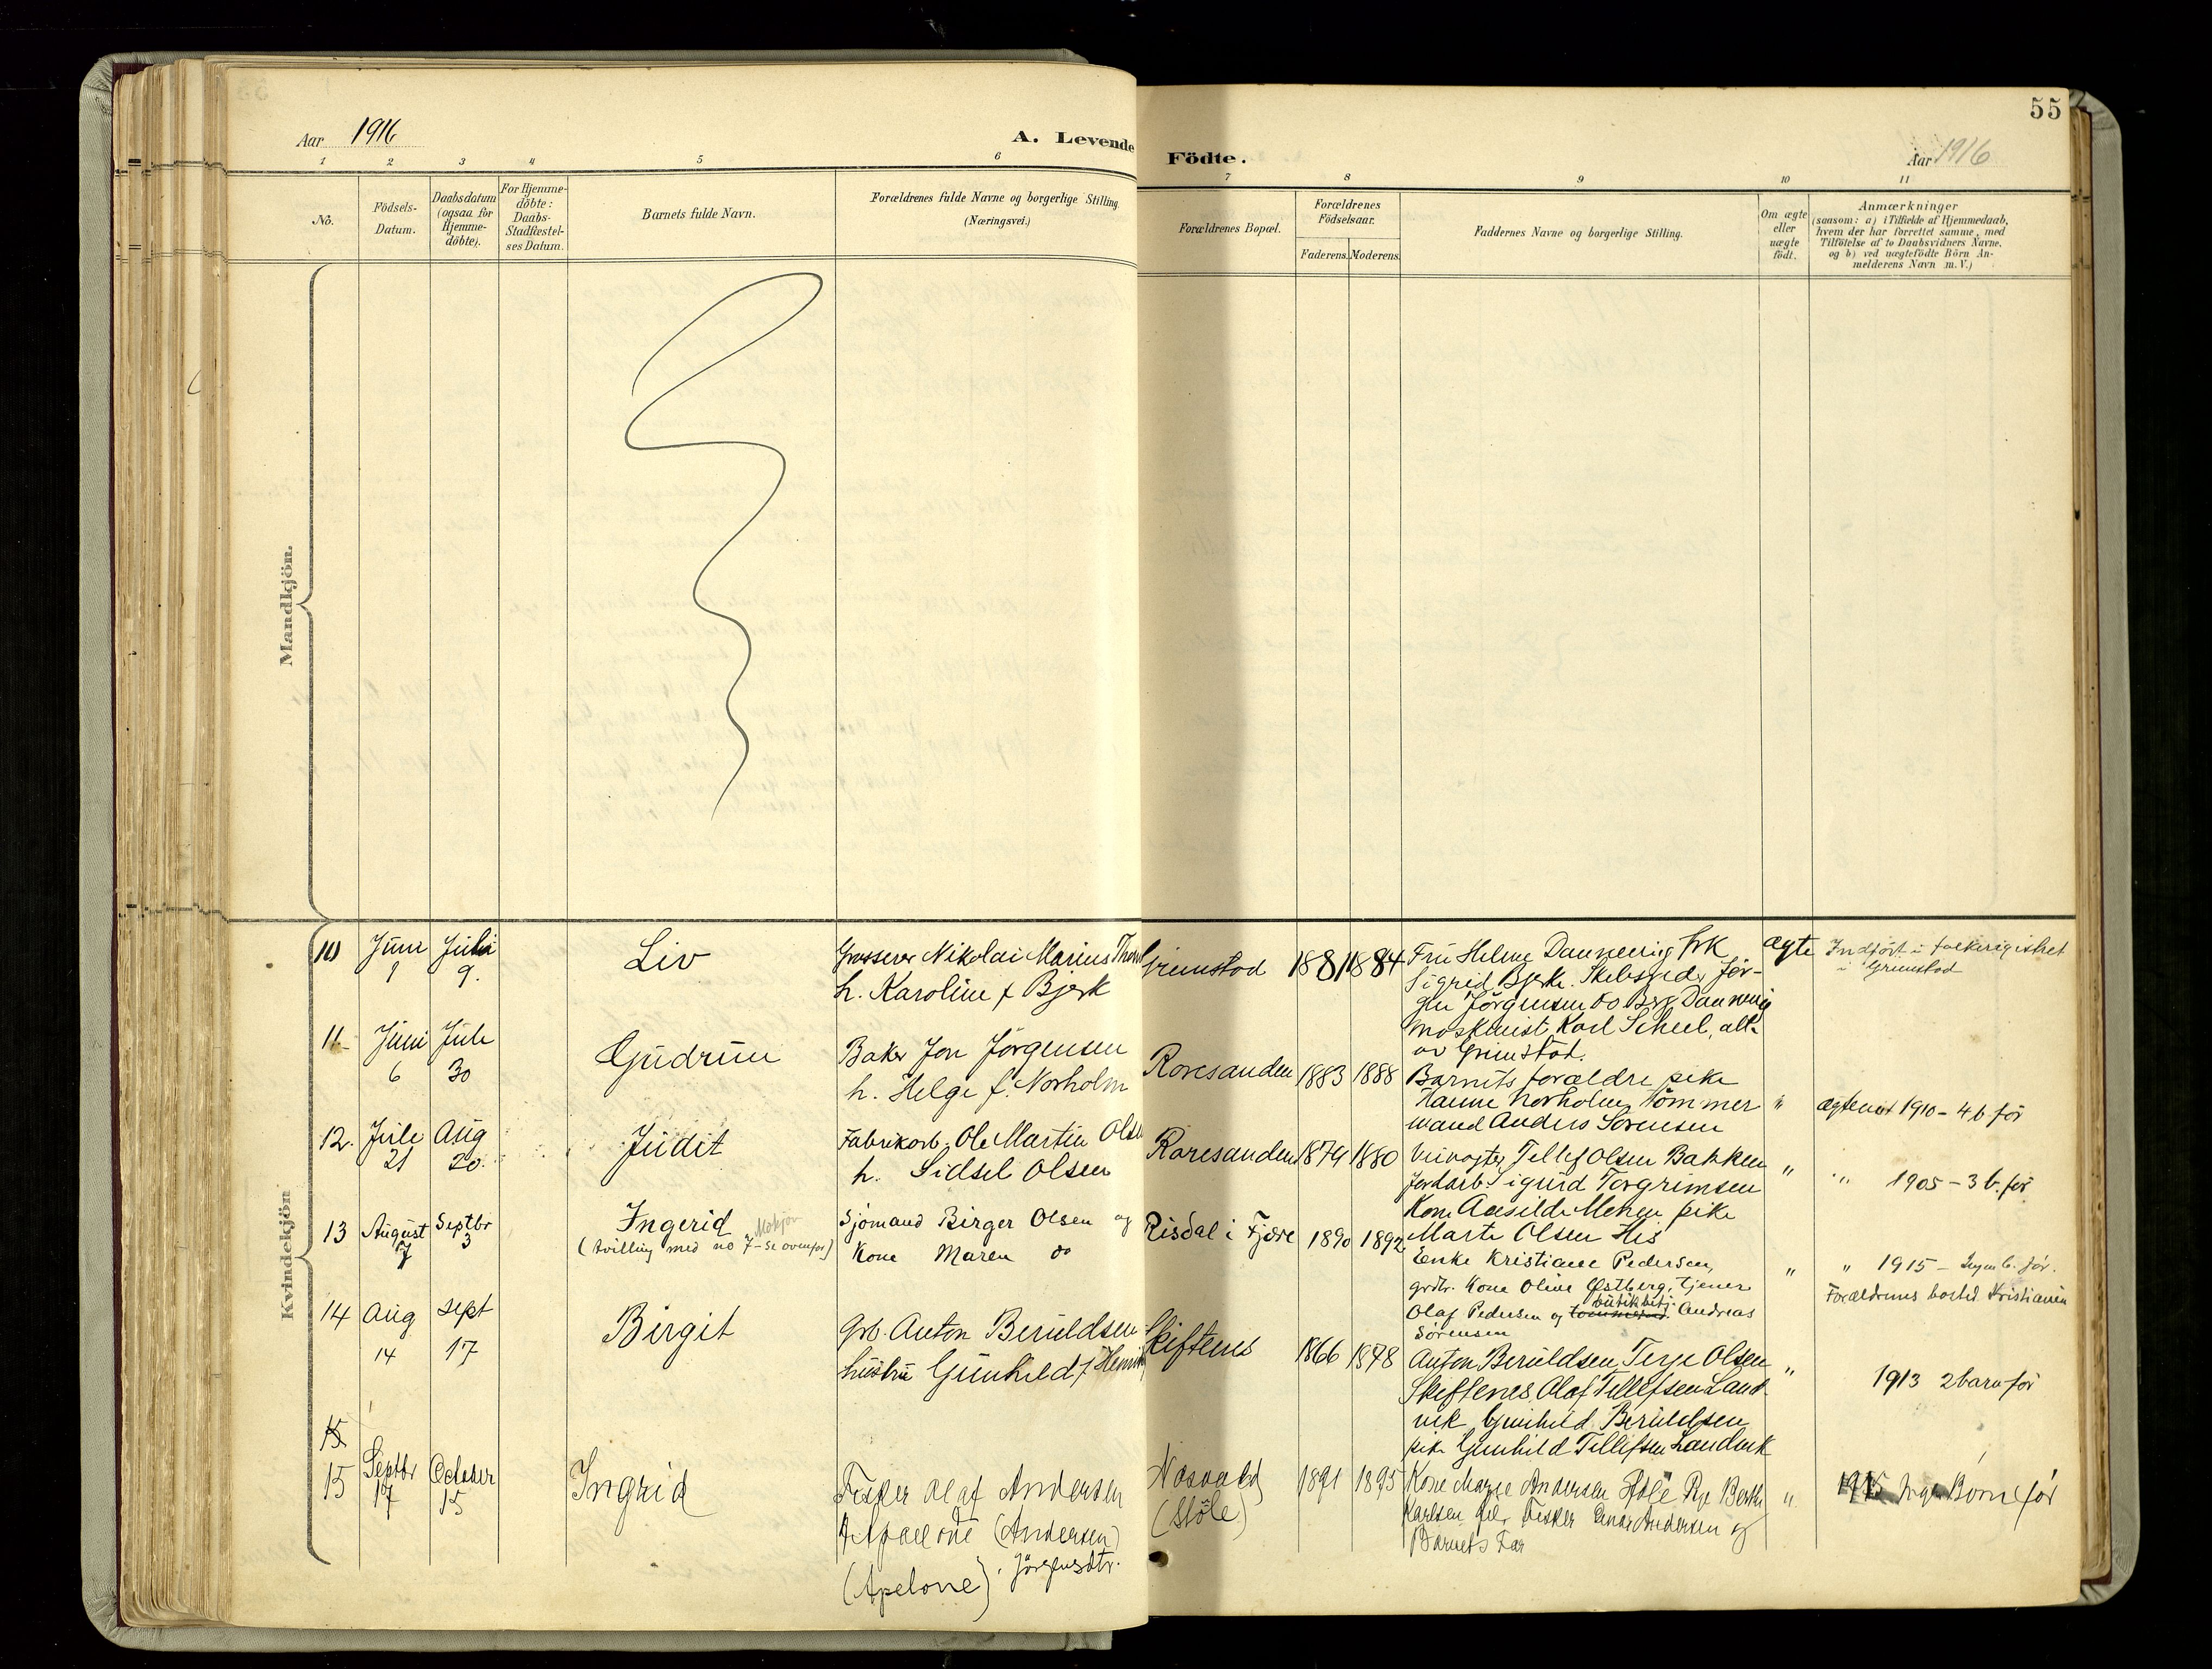 55
Aar 1916
A. Levende Födte.
Aar 1916
1 2 3 4 5 6 7 8 9 10 11
No.
Födsels-
Datum.
Daabsdatum
(ogsaa for
Hjemme-
döbte).
For Hjemme-
döbte:
Daabs-
Stadfæstel-
ses Datum.
Barnets fulde Navn.
Forældrenes fulde Navne og borgerlige Stilling
(Næringsvei.)
Forældrenes Bopæl.
Forældrenes
Födselsaar.
Faderens. Moderens.
Faddernes Navne og borgerlige Stilling.
Om ægte
eller
uægte
födt.
Anmærkninger
(saasom: a) i Tilfælde af Hjemmedaab,
hvem der har forrettet samme, med
Tilföielse af to Daabsvidners Navne,
og b) ved uægtefödte Börn An-
melderens Navn m.V.)
Mandkjön.
Kvindekjön
10
Juni
9
Juli
9.
Liv
Grosserer Nikolai Marius
h. Karoline f Bjerk
Grimstod
1881 1884
Fru Helene Dannevig frk
Sigrid Bjerk. Skibsreder Jør-
gen Jörgensen Dannevig
maskinist Karl Scheel, alle
av Grimstad.
ægte
Indført i folkerigistret
i Grimstad
11
Juni
6
Juli
30
Gudrun
Baker Jon Jörgensen
h. Helge f. Norholm
Roresanden
1883 1888
Barnets forældre pike
Hanne Norholm, Tömmer
mand Anders Sorensen
"
ægteviet 1910 - 4 b. för
12.
Juli
21
Aug
20.
Judit
Fabrikarb. Ole Martin Olsen
h. Sidsel Olsen
Roresanden
1879 1880
Veivogter Tellef Olsen Bakken
Jordarb. Sigurd Torgrimsen
Kone Aasilde Mehen pike
Marte Olsen His
"
" 1905 - 3 b. för
13
August
7
Septbr
3
Ingerid
(tvilling med no 7 - se ovenfor) Mckjøn
Sjömand Birger Olsen og
Kone Maren do
Risdal i Fjære
1890 1892
Enke Kristiane Pedersen,
grdbr. Kone Oline Østberg, tjener
Olaf Pedersen og butikbetj. Andreas
Sörensen
"
" 1915 - Ingen b. før.
Forældrenes bosted Kristiania
14
Aug
14
Sept
17
Birgit
Grb. Anton Beruldsen
hustru Gunhild f
Skiftenes
1866 1878
Anton Beruldsen, Terje Olsen
Skiftenes, Olaf Tellefsen Land
vik Gunhild Beruldsen
pike Gunhild Tellefsen Landvik
"
1913 2 barn för
15
15
Septbr
17
October
15
Ingrid
Fisker Olaf Andersen
Apaelone (Andersen)
(Apelone) Jörgensdtr.
(Støle)
1891 1895
Kone Marie Andersen Støle Pige Berthe
Karlsen Fisker Einar Andersen og
Barnets Far
"
1915 Ingen Børn før